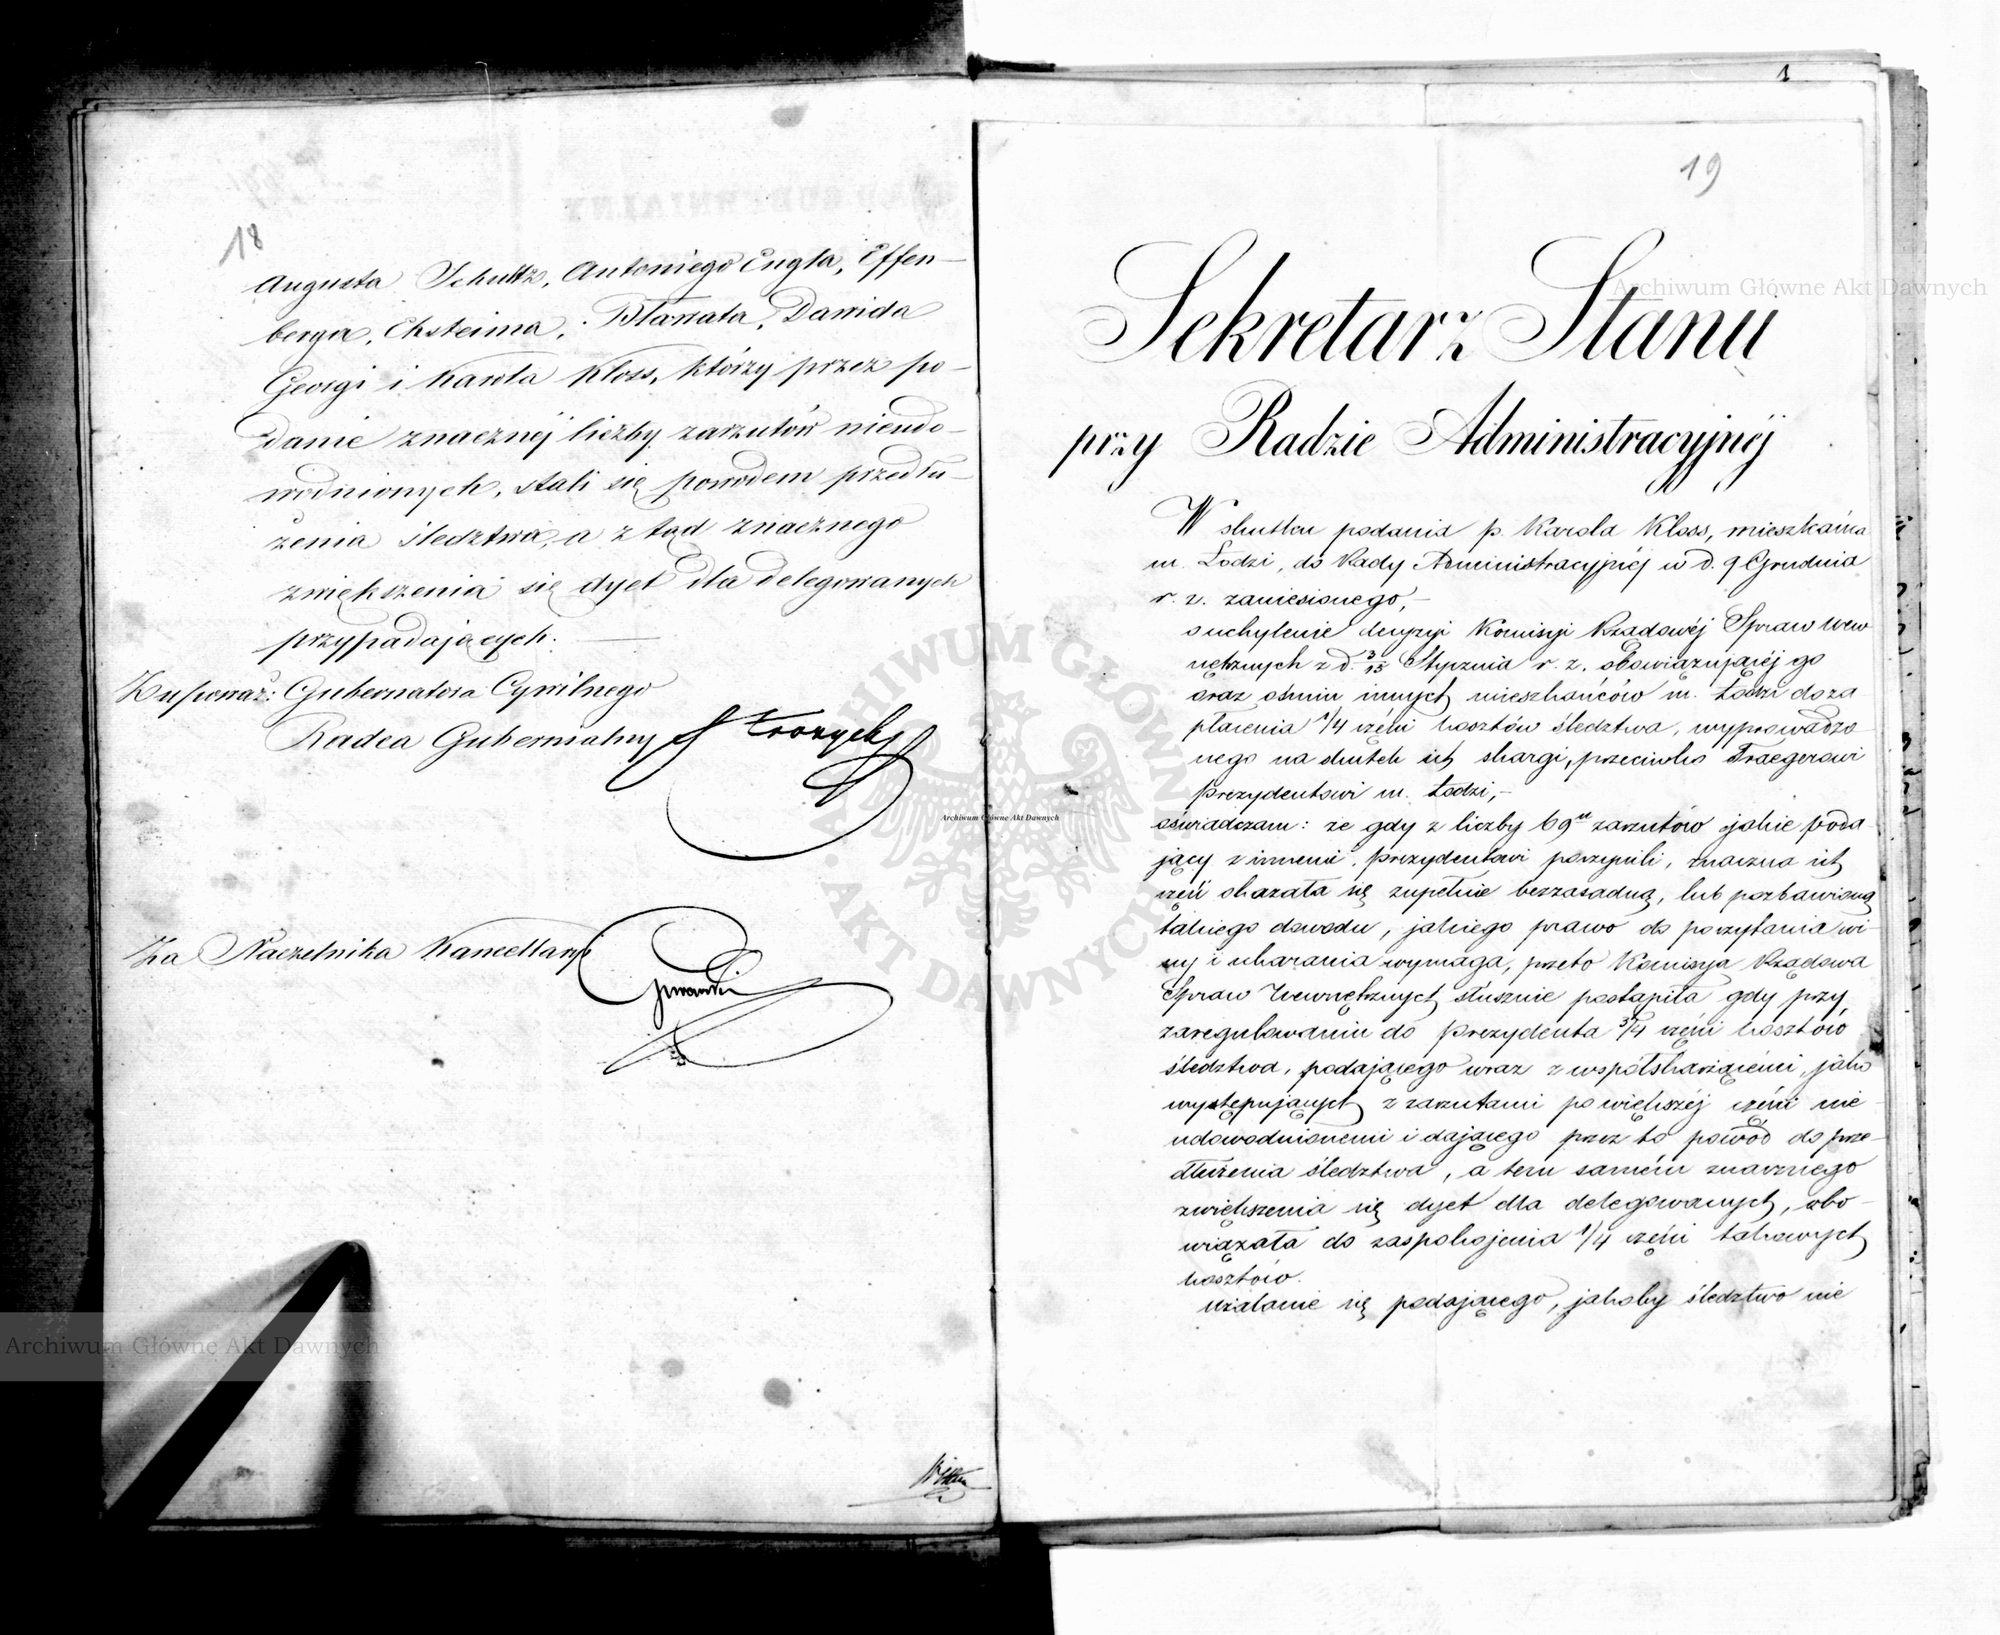 18
Augusta Schultz, Antoniego Engla, Effen-
berga, Eksteina, Bławata, Dawida
Georgi i Karola Kloss, którzy przez po-
danie znacznéj liczby zarzutów nieudo-
wodnionych, stali się powodem przedłu-
żenia śledztwa, a ztąd znacznego
zwiększenia się dyet dla delegowanych
przypadających.
Z upoważ: Gubernatora Cywilnego
Radca Gubernialny
Za Naczelnika Kancellaryi
1
19
Sekretarz Stanu
przy Radzie Administracyjnéj
W skutku podania p. Karola Kloss, mieszkańca
m. Łodzi, do Rady Administracyjnéj w d. 9 Grudnia
r. z. zaniesionego,-
o uchylenie decyzyi Komisyi Rządowéj Spraw Wew-
nętrznych z d. 3/15 Stycznia r. z. obowiązującéj go
oraz ośmiu innych mieszkańców m. Łodzi do za-
płacenia 1/4 części kosztów śledztwa, wyprowadzo-
nego na skutek ich skargi, przeciwko Traegerowi
Prezydentowi m. Łodzi,-
oświadczam: że gdy z liczby 69 zarzutów jakie poda-
jący z innemi, Prezydentowi poczynili, znaczna ich
część okazała się zupełnie bezzasadną, lub pozbawioną
takiego dowodu, jakiego prawo do poczytania wi-
ny i ukarania wymaga, przeto Komisya Rządowa
Spraw Wewnętrznych słusznie postąpiła gdy przy
zaregulowaniu do Prezydenta 3/4 części kosztów
śledztwa, podającego wraz z współskarżącémi, jako
występujących z zarzutami po większéj części nie
udowodnionemi i dającego przez to powód do prze-
dłużenia śledztwa, a tem samém znacznego
zwiększenia się dyet dla delegowanych, obo-
wiązała do zaspokojenia 1/4 części takowych
kosztów.
Użalanie się podającego, jakoby śledztwo nie
Archiwum Główne Akt Dawnych
Archiwum Główne Akt Dawnych
Archiwum Główne Akt Dawnych
ARCHIWUM GŁÓWNE
AKT DAWNYCH